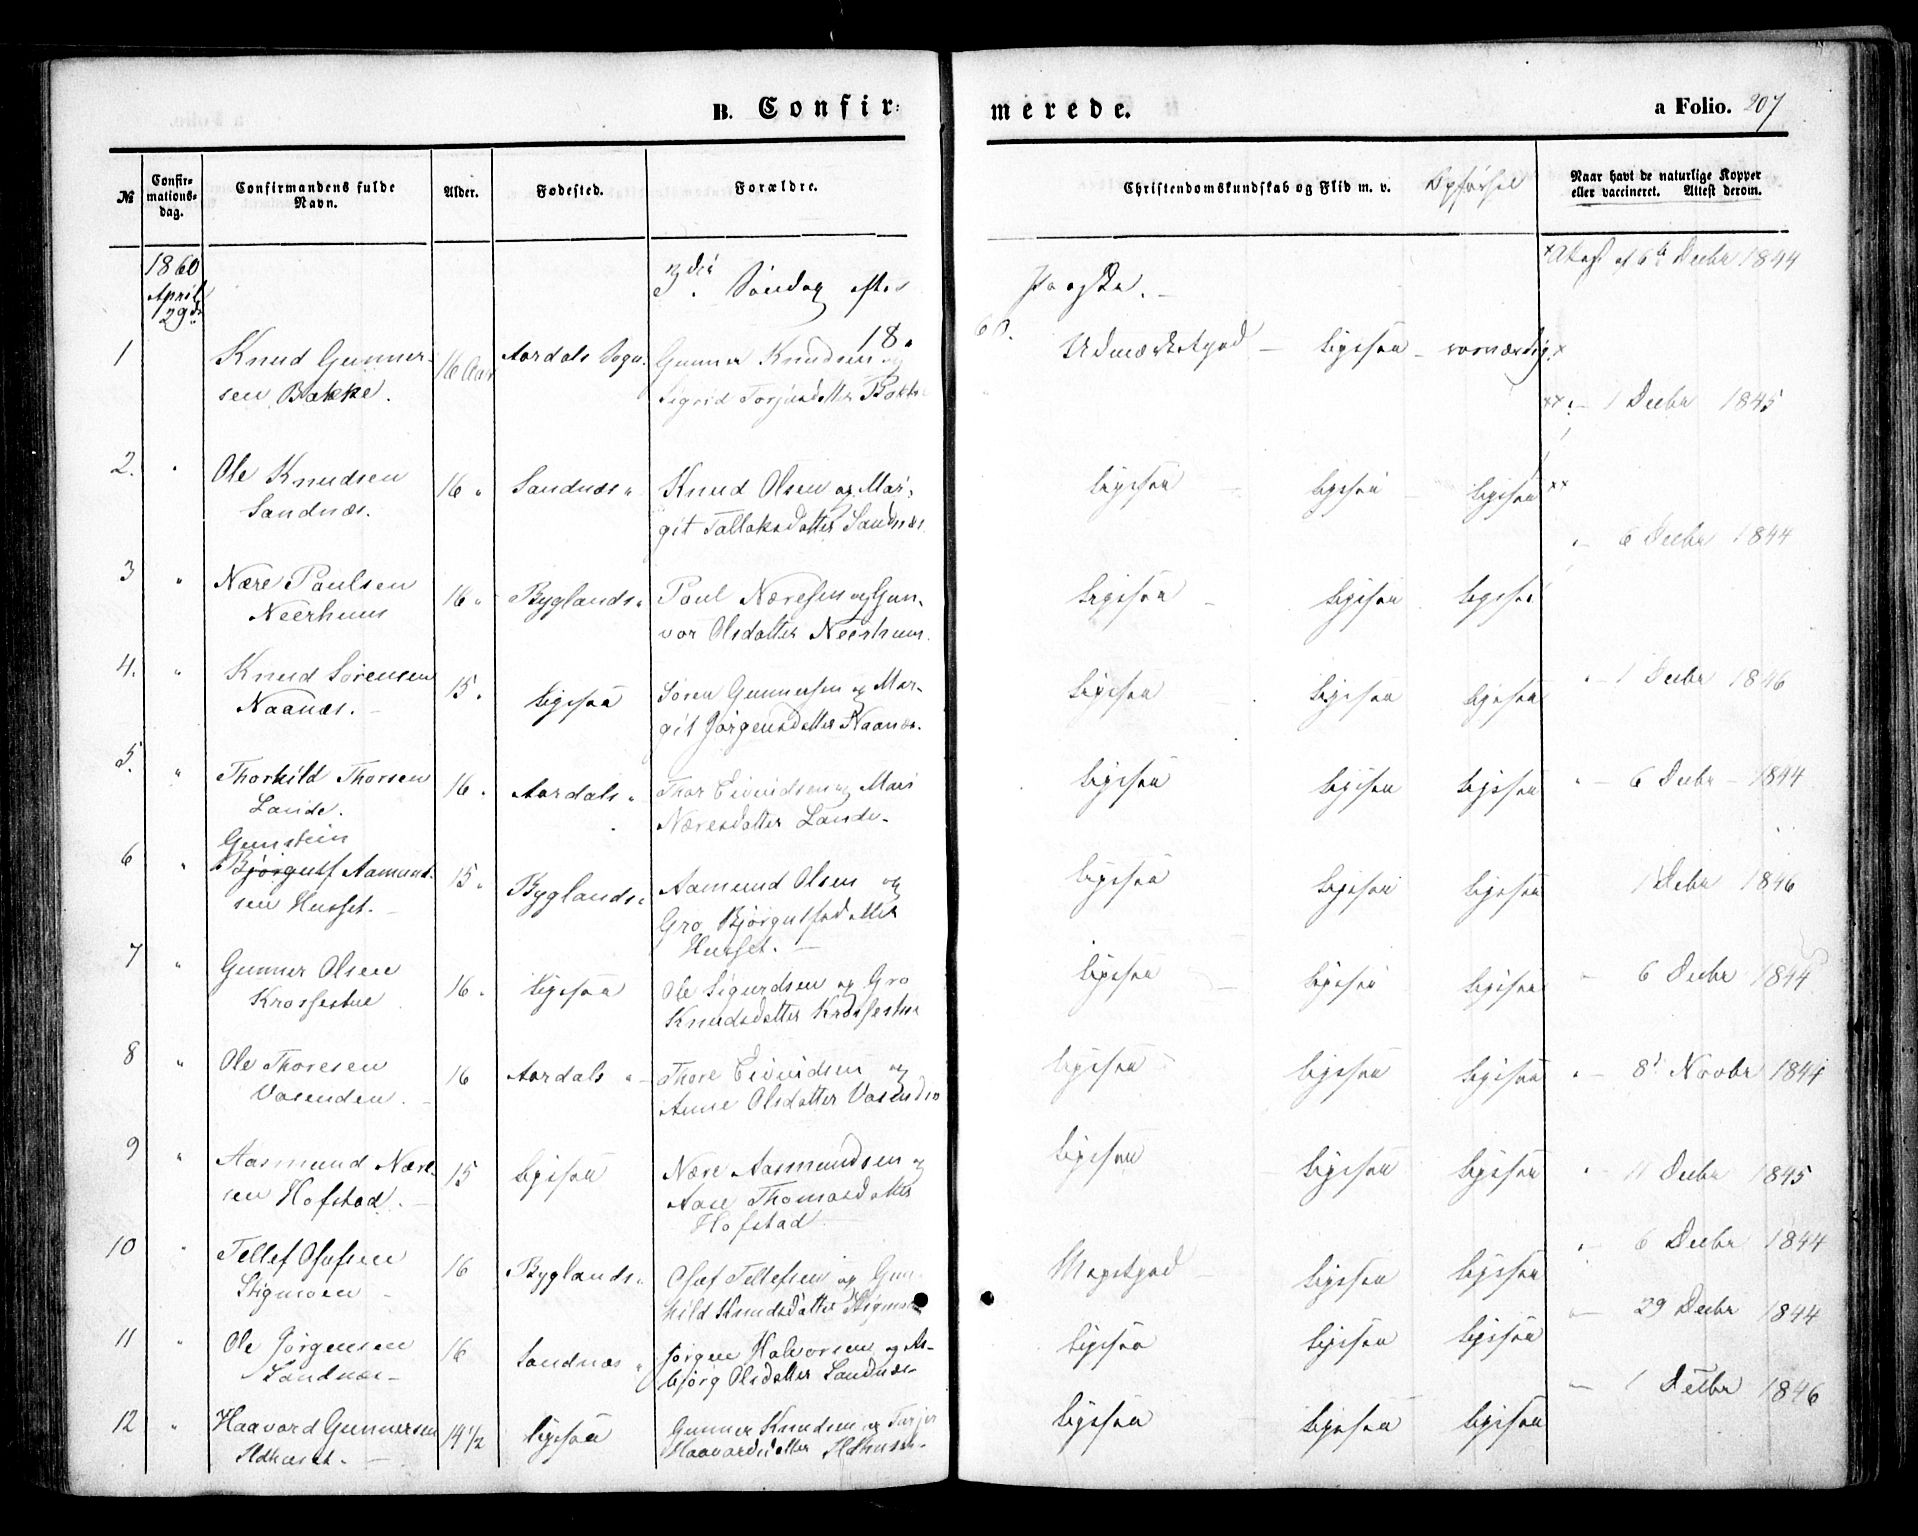 B. Confir=
merede.
a Folio. 207
№
Confir-
mations-
dag.
Confirmandens fulde
Navn.
Alder.
Fødested.
Forældre.
Christendomskundskab og Flid m. v. Opførsel
Naar havt de naturlige Kopper
eller vaccineret. Attest derom.
1860
April
29de
3die Søndag efter
18
60.
Paaske.
Attest af 6te Decbr 1844
1
Knud Gunner-
sen Bakke.
16 Aar
Aardals Sogn.
Gunner Knudsen og
Sigrid Torjusdatter Bakke
Udmærketgod — ligesaa — rosværdig ×
×× " — 1 Decbr 1845
2. "
Ole Knudsen
Sandnæs.
16 "
Sandnæs "
Knud Olsen og Mar-
git Tallaksdatter Sandnæs
ligesaa — ligesaa — ligesaa ××
" — 6 Decbr 1844
3 "
Nære Paulsen
Neerhuus
16 "
Byglands "
Poul Næresen og Gun-
vor Olsdatter Neerhuus.
ligesaa — ligesaa ligesaa
4. "
Knud Sørensen
Naanæs. —
15 "
ligesaa
Søren Gunnersen og Mar-
git Jørgensdatter Naanæs.
ligesaa ligesaa ligesaa
" — 1 Decbr 1846
5. "
Thorkild Thorsen
Lande.
16 "
Aardals "
Thor Eivindsen og Mari
Næresdatter Lande.
ligesaa ligesaa ligesaa
" — 6 Decbr — 1844
6 "
Gunstein
Bjørgulf Aamund-
sen Husset. —
15 "
Byglands "
Aamund Olsen og
Gro Bjørgulfsdatter
Husset. —
ligesaa ligesaa ligesaa
1 Decbr 1846
7 "
Gunner Olsen
Krosfestue
16 "
ligesaa
Ole Sigurdsen og Gro
Knudsdatter Krosfestue
ligesaa ligesaa ligesaa
— 6 Decbr 1844
8 "
Ole Thoresen
Vasenden. —
16
Aardals "
Thore Eivindsen og
Anne Olsdatter Vasenden
ligesaa ligesaa ligesaa
" — 8 Novbr 1844
9 "
Aasmund Nære-
sen Hofstad. —
15
ligesaa
Nære Aasmundsen og
Aase Thomasdatter
Hofstad
ligesaa ligesaa ligesaa
" — 11 Decbr 1845
10 "
Tellef Olefsen
Stigmoen —
16
Byglands "
Olef Tellefsen og Gun-
hild Knudsdatter Stigmoen
Megetgod — ligesaa ligesaa
" — 6 Decbr 1844
11 "
Ole Jørgensen
Sandnæs —
16
Sandnæs "
Jørgen Halvorsen og As-
bjørg Olsdatter Sandnæs
ligesaa ligesaa ligesaa
— 29 Decbr 1844
12 "
Haavard Gunnersen
14 1/2
ligesaa
Gunner Knudsen og
Haavardsdatter
ligesaa ligesaa ligesaa
— 1 Decbr 1846